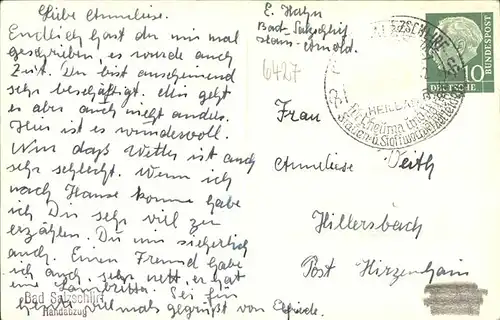 Liebe Anneliese.
Endlich hast du mir mal
geschrieben, es wurde auch
Zeit. Du bist anscheinend
sehr beschäftigt. Mir geht
es aber auch nicht anders.
Hier ist es wundervoll.
Nur das Wetter ist auch
sehr schlecht. Wenn ich
nach Hause komme habe
ich Dir sehr viel zu
erzählen. Du mir sicherlich
auch. Einen Freund habe
ich auch, sehr nett, er hat
eine Lambretta. Sei für
heute vielmals gegrüßt von Elfriede.
Bad Salzschlirf
Handabzug
E. Hahn
Bad-Salzschlirf
Haus-Arnold.
6427
HEILBAD
10
DEUTSCHE
BUNDESPOST
Frau
Anneliese Veith
Hillersbach
Post Hirzenhain